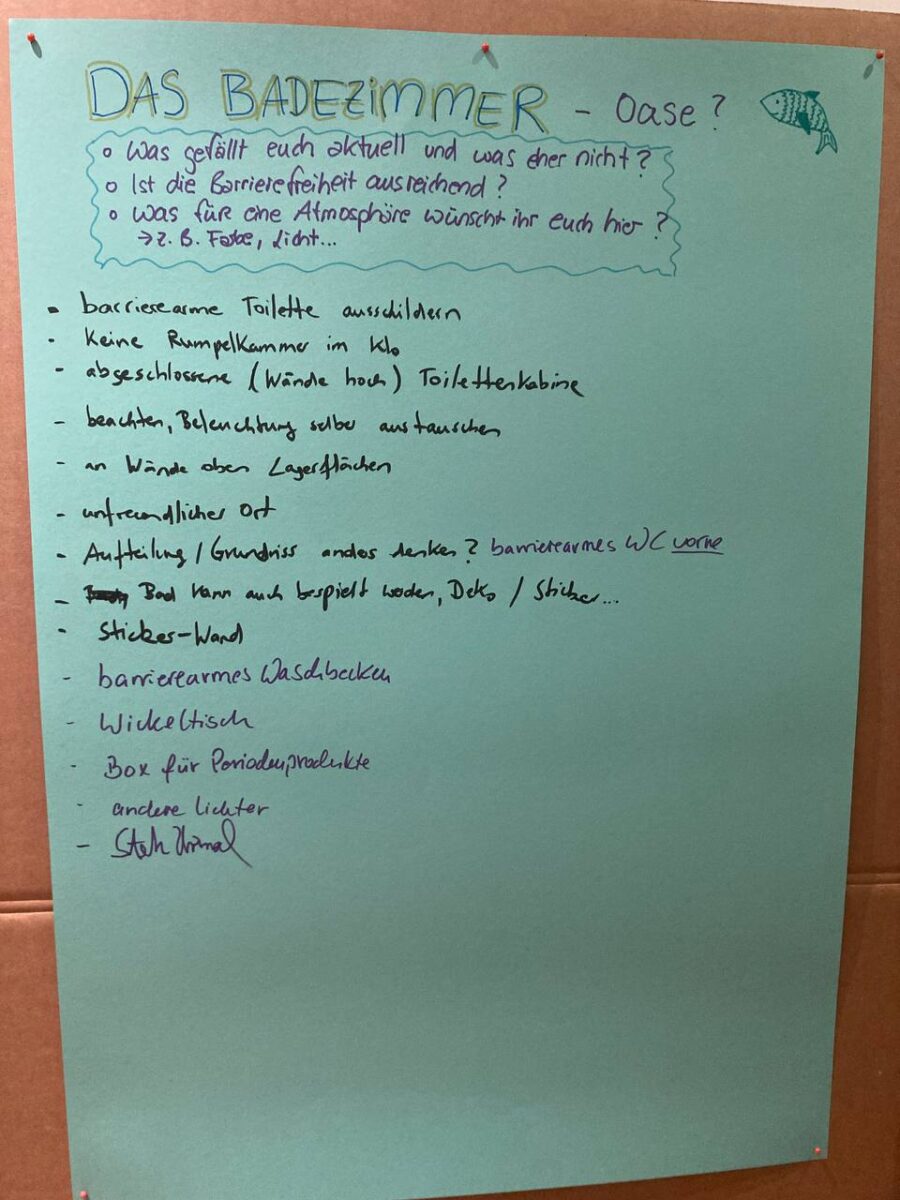 DAS BADEZIMMER - Oase?
o Was gefällt euch aktuell und was eher nicht?
o Ist die Barrierefreiheit ausreichend?
o Was für eine Atmosphäre wünscht ihr euch hier?
→ z. B. Farbe, Licht...
- barrierearme Toilette ausschildern
- Keine Rumpelkammer im Klo
- abgeschlossene (Wände hoch) Toilettenkabine
- beachten, Beleuchtung selber austauschen
- an Wände oben Lagerflächen
- unfreundlicher Ort
- Aufteilung / Grundriss anders denken? barrierearmes WC vorne
- Bad kann auch bespielt werden, Deko / Sticker...
- Sticker-Wand
- barrierearmes Waschbecken
- Wickeltisch
- Box für Periodenprodukte
- andere Lichter
- Steh Urinal